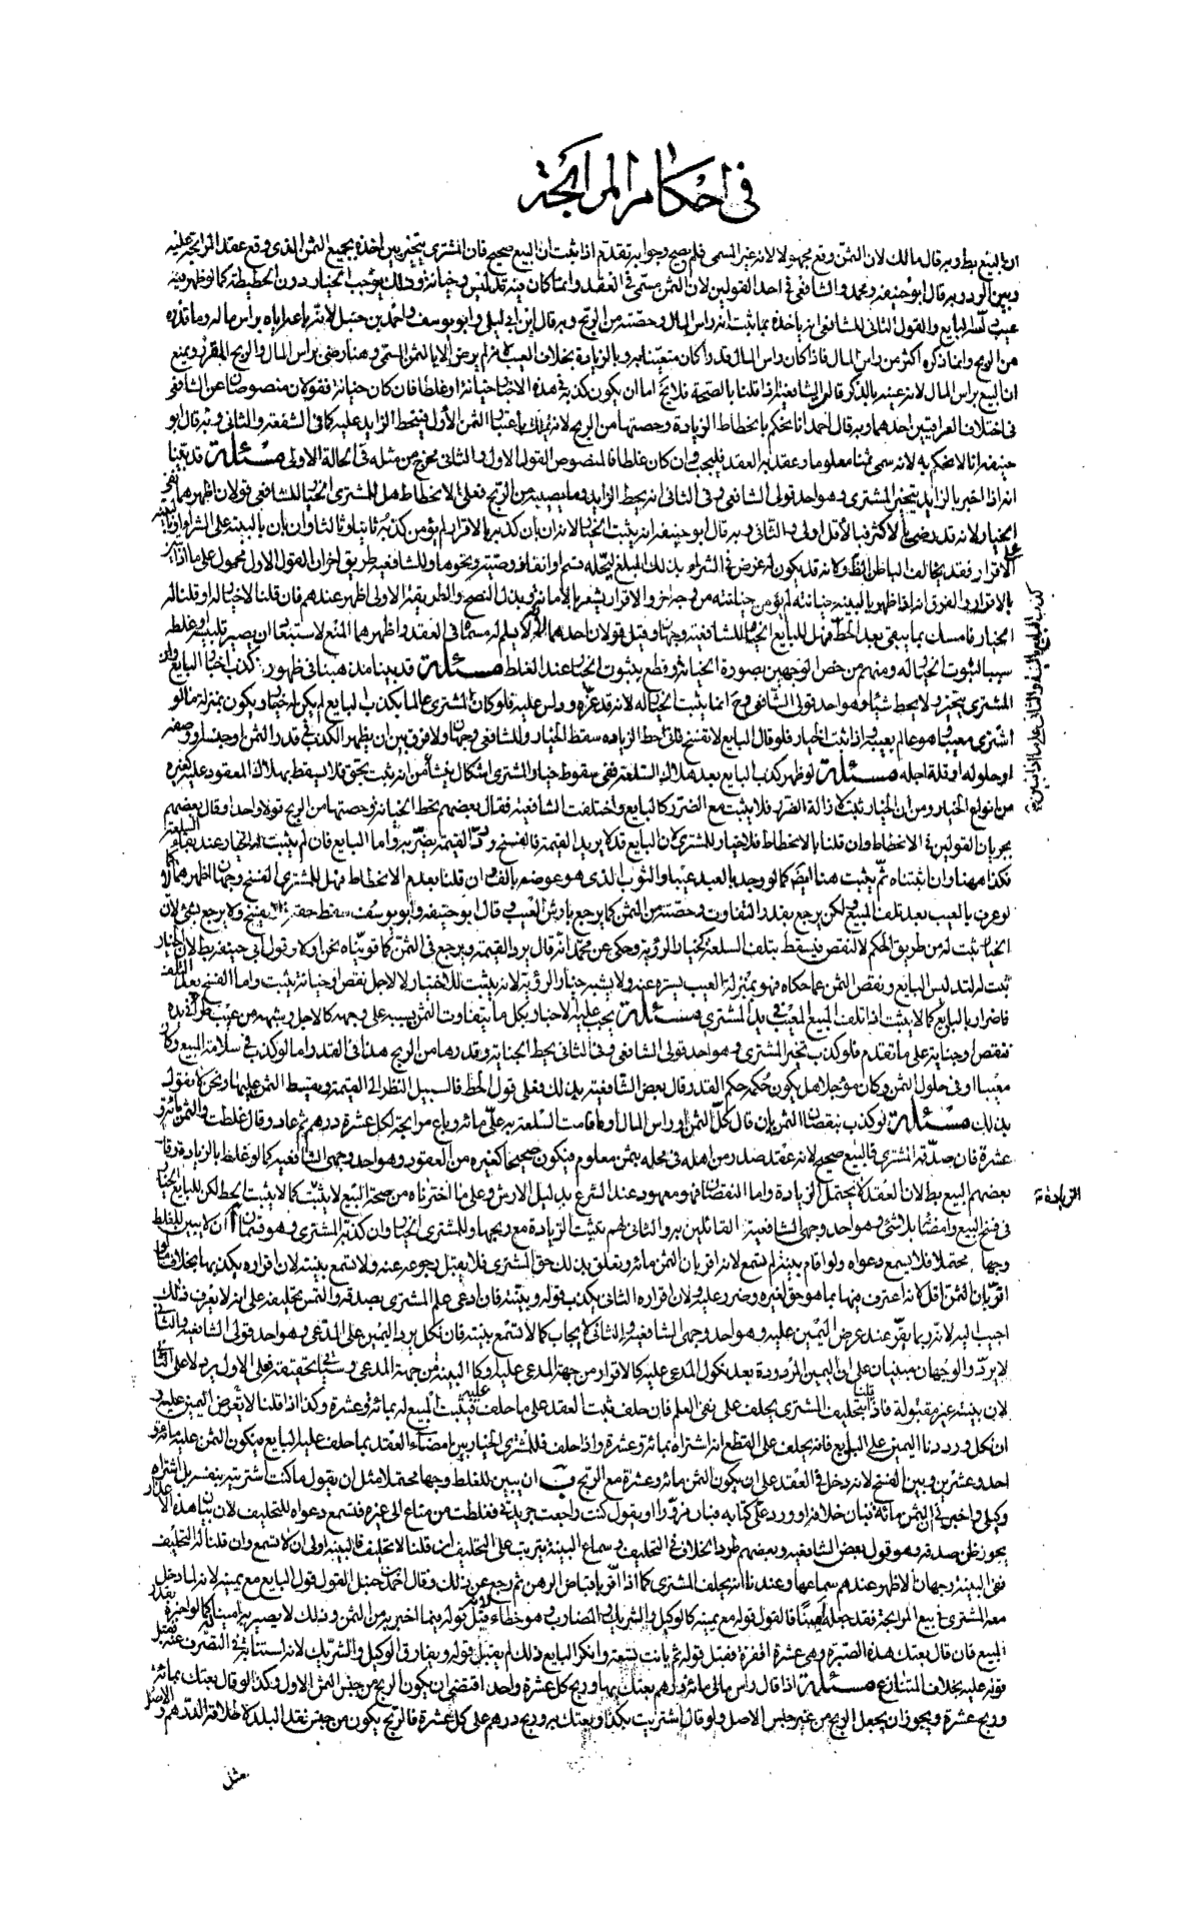 في احكام المرابحة
ان البيع بط وبه قال مالك لان الثمن وقع مجهولا لانه غير المسمى فلم يصح وجوابه تقدم اذا ثبت ان البيع صحيح فان المشترى يتخير بين اخذه بجميع الثمن الذى وقع عقد المرابحة عليه
وبين الرد وبه قال ابو حنيفه ومحمد والشافعى في احد القولين لان الثمن مسمى في العقد وانما كان فيه تدليس وخيانة وذلك يوجب الخيار دون الحطيطة كما لو ظهر فيه
عيب البايع والقول الثانى للشافعى انه ياخذه بما ثبت انه راس المال وحصته من الربح وبه قال ابن ابي ليلى وابو يوسف واحمد بن حنبل لانه باعه اياه براس ماله وما قدره
من الربح وانما ذكره اكثر من راس المال فاذا كان راس المال قدرا كان متعينا به وبالزيادة بخلاف العيب فانه لم يرض الا بالثمن المسمى وهنا رضى براس المال والربح المقرر ويمنع
ان البيع براس المال لانه عينه بالذكر قالت الشافعية اذا قلنا بالصحة فلا يخ اما ان يكون كذبه في هذه الاخبار خيانة او غلطا فان كان خيانة فقولان منصوصان عن الشافعى
في اختلاف العراقيين احدهما وبه قال احمد انا نحكم بانحطاط الزيادة وحصتها من الربح لانه تمليك باعتبار الثمن الأول فينحط الزايد عليه كما في الشفعة والثانى وبه قال ابو
حنيفه انا لا نحكم به لانه سمى ثمنا معلوما وعقد به العقد فليجب وان كان غلطا فالمنصوص القول الاول والثانى مخرج من مثله في الحالة الاولى مسئلة قد بينا
انه اذا اخبر بالزايد يتخير المشترى وهو احد قولى الشافعى وفى الثانى انه يحط الزايد وما يصيبه من الربح فعلى الانحطاط هل للمشترى الخيار للشافعى قولان اظهرهما نفى
الخيار لانه قد رضى بالاكثر فبالأقل اولى والثانى وبه قال ابو حنيفه انه يثبت الخيار لانه ان بان كذبه بالاقرار لم يؤمن كذبه ثانيا وثالثا وان بان بالبينة على الشراء او
الاقرار فقد يخالف الباطن الظاهر ولانه قد يكون له غرض في الشراء بذلك المبلغ لتحلة قسم او انفاذ وصية ونحوها وللشافعيه طريق اخر ان القول الاول محمول على ما اذا بان
بالاقرار والفرق انه اذا ظهر بالبينة خيانته لم نؤمن خيانته من وجه اخر والاقرار يشعر بالامانة وبذل النصح والطريقة الاولى اظهر عندهم فان قلنا لاخيار له او قلنا له
الخيار فامسك بما يبقى بعد الحط فهل للبايع الخيار للشافعية وجهان وقيل قولان احدهما نعم لانه لم يسلم له ما سمى في العقد واظهرهما المنع لاستبعاد ان يصير تلبيسه او غلطه
سببا لثبوت الخيار له ومنهم من خص الوجهين بصورة الخيانة وقطع بثبوت الخيار عند الغلط مسئلة قد بينا مذهبنا في ظهور كذب اخبار البايع وان
المشترى يتخير ولا يحط شيئا وهو احد قولى الشافعى وح انما يثبت الخيار له لانه قد غره ودلس عليه فلو كان المشترى عالما بكذب البايع لم يكن له خيار ويكون بمنزلة ما لو
اشترى معيبا وهو عالم بعيبه واذا ثبت الخيار فلو قال البايع لا تفسخ فانى احط الزياده سقط الخيار وللشافعى وجهان ولا فرق بين ان يظهر الكذب في قدر الثمن او جنسه او وصفه
او حلوله او قلة اجله مسئلة لو ظهر كذب البايع بعد هلاك السلعة ففى سقوط خيار المشترى اشكال ينشأ من انه يثبت بحق فلا يسقط بهلاك المعقود عليه كغيره
من انواع الخيار ومن ان الخيار ثبت لازالة الضرر فلا يثبت مع الضرر كالبايع واختلفت الشافعية فقال بعضهم بحط الخيانة وحصتها من الربح قولا واحدا وقال بعضهم
بجريان القولين في الانحطاط وان قلنا بالانحطاط فلا خيار للمشترى لان البايع قد لا يريد القيمة فالفسخ ورد القيمة يضر به واما البايع فان لم يثبت له الخيار عند بقاء السلعة
فكذا ههنا وان اثبتناه ثم يثبت هنا ايضا كما لو وجد بالعبد عيبا والثوب الذى هو عوضه تالف وان قلنا بعدم الانحطاط فهل للمشترى الفسخ وجهان اظهرهما لا كما
لو عرف بالعيب بعد تلف المبيع ولكن يرجع بقدر التفاوت وحصته من الثمن كما يرجع بارش العيب وقال ابو حنيفه وابو يوسف سقط حقه ولا يرجع بشئ لان
الخيار ثبت له من طريق الحكم لا لنقص فيسقط بتلف السلعة كخيار الرؤية وحكى عن محمد انه قال يرد القيمة ويرجع في الثمن كما قويناه نحن اولا وقول ابى حنيفه بط لان الخيار
ثبت له لتدليس البايع ونقص الثمن عما حكاه فهو بمنزلة العيب يستره عنه ولا يشبه خيار الرؤية لانه يثبت للاختيار لا لاجل نقص او خيانة يثبت واما الفسخ بعد التلف
فاضرار بالبايع كما لا يثبت اذا تلف المبيع المعيب في يد المشترى مسئلة يجب عليه الاخبار بكل ما يتفاوت الثمن بسببه على وجهه كالاجل وشبهه من عيب طرأ في يده
فنقص او جناية على ما تقدم فلو كذب تخير المشترى وهو احد قولى الشافعى وفى الثانى يحط الجناية وقدرها من الربح هذا في القدر اما لو كذب في سلامة المبيع وكان
معيبا او في حلول الثمن وكان مؤجلا هل يكون حكمه حكم القدر قال بعض الشافعية بذلك فعلى قول الحط فالسبيل النظر الى القيمة وتقسيط الثمن عليها ونحن لا نقول
بذلك مسئلة لو كذب بنقصان الثمن بان قال كل الثمن او راس المال او ما قامت السلعة به على مائة وباع مرابحة لكل عشرة درهم ثم عاد وقال غلطت والثمن مائة و
عشرة فان صدقه المشترى فالبيع صحيح لانه عقد صدر من اهله في محله بثمن معلوم فيكون صحيحا كغيره من العقود وهو احد وجهى الشافعية كما لو غلط بالزيادة وقال
بعضهم البيع بط لان العقد لا يحتمل الزيادة واما النقصان فهو معهود عند الشرع بدليل الارش وعلى ما اخترناه من صحة البيع لا يثبت كما لا يثبت الحط لكن للبايع الخيار
في فسخ البيع وامضائه بلا شئ وهو احد وجهى الشافعية القائلين به والثانى لهم تثبت الزيادة مع ربحها وللمشترى الخيار وان كذبه المشترى وهو قسمان أ ان لا يبين للغلط
وجها محتملا فلا يسمع دعواه ولو اقام بينة لم تسمع لانه اقر بان الثمن مائة وتعلق بذلك حق المشترى فلا يقبل رجوعه عنه ولا تسمع بينته لان اقراره يكذبها بخلاف ما لو
اقر بان الثمن اقل لانه اعترف منهما بما هو حق لغيره وضرر عليه ولان اقراره الثانى يكذب قوله وبينته فان ادعى علم المشترى بصدقه والتمس تحليفه على انه لا يعرف ذلك
اجيب اليه لانه ربما يقر عند عرض اليمين عليه وهو احد وجهى الشافعية والثانى لا يجاب كما لا تسمع بينته فان نكل يرد اليمين على المدعى وهو احد قولى الشافعية والثانى
لا يرد والوجهان مبنيان على ان اليمين المردودة بعد نكول المدعى عليه كالاقرار من جهة المدعى عليه او كالبينة من جهة المدعى وسيأتى تحقيقه فعلى الاول يرد لا على الثانى
لان بينته غير مقبولة فاذا قلنا بتحليف المشترى يحلف على نفى العلم فان حلف ثبت العقد على ما حلف عليه فيثبت المبيع له بمائة وعشرة وكذا اذا قلنا لا يعرض اليمين عليه و
ان نكل ورددنا اليمين على البايع فانه يحلف على القطع انه اشتراه بمائة وعشرة واذا حلف فللمشترى الخيار بين امضاء العقد بما حلف عليه البايع فيكون الثمن عليه مائة و
احد وعشرين وبين الفسخ لانه دخل في العقد على ان يكون الثمن مائة وعشرة مع الربح ب ان يبين للغلط وجها محتملا مثل ان يقول ما كنت اشتريته بنفسى بل اشتراه
وكيلى واخبرنى ان الثمن مائة فبان خلافه او ورد على كتابه فبان مزورا او يقول كنت راجعت جريدتى فغلطت من متاع الى غيره فتسمع دعواه للتحليف لان بيان هذه الاعذار
يجوز ظن صدقه وهو قول بعض الشافعيه وبعضهم طرد الخلاف في التحليف وسماع البينة يترتب على التحليف ان قلنا لا تحليف فالبينة اولى ان لا تسمع وان قلنا له التحليف
ففى البينة وجهان الاظهر عندهم سماعها وعندنا انه يحلف المشترى كما اذا اقر باقباض الرهن ثم رجع عن ذلك وقال احمد بن حنبل القول قول البايع مع يمينه لانه لما دخل
معه المشترى في بيع المرابحة فقد جعله امينا فالقول قوله مع يمينه كالوكيل والشريك والمضارب وهو خطاء لانه قبل قوله فيما اخبر به من الثمن وذلك لا يصير به امينا كما لو اخبره بقدر
المبيع فان قال بعتك هذه الصبرة وهى عشرة اقفزة فقبل قوله ثم بانت تسعة وانكر البايع ذلك لم يقبل قوله ويفارق الوكيل والشريك لانه استنابة في التصرف عنه فقبل
قوله عليه بخلاف المتنازع مسئلة اذا قال راس مالى مائة درهم بعتك بها وربح كل عشرة واحد اقتضى ان يكون الربح من جنس الثمن الاول وكذا لو قال بعتك بمائة
وربح عشرة ويجوز ان يجعل الربح من غير جنس الاصل ولو قال اشتريت بكذا وبعتك به وربح درهم على كل عشرة فالربح يكون من جنس نقد البلد لاطلاقه الدرهم و الاصل
الزيادة
مثل